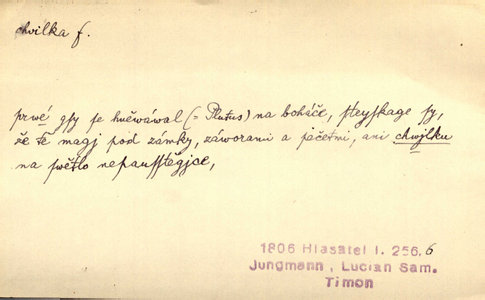 chvilka f.
prwé gsy se hněwáwal (= Plutus) na boháče, steyskage sy,
že tě magj pod zámky, záworami a pečetmi, ani chwjlku
na swětlo nepausstěgjce,
1806 Hlasatel I. 256,6
Jungmann, Lucian Sam.
Timon